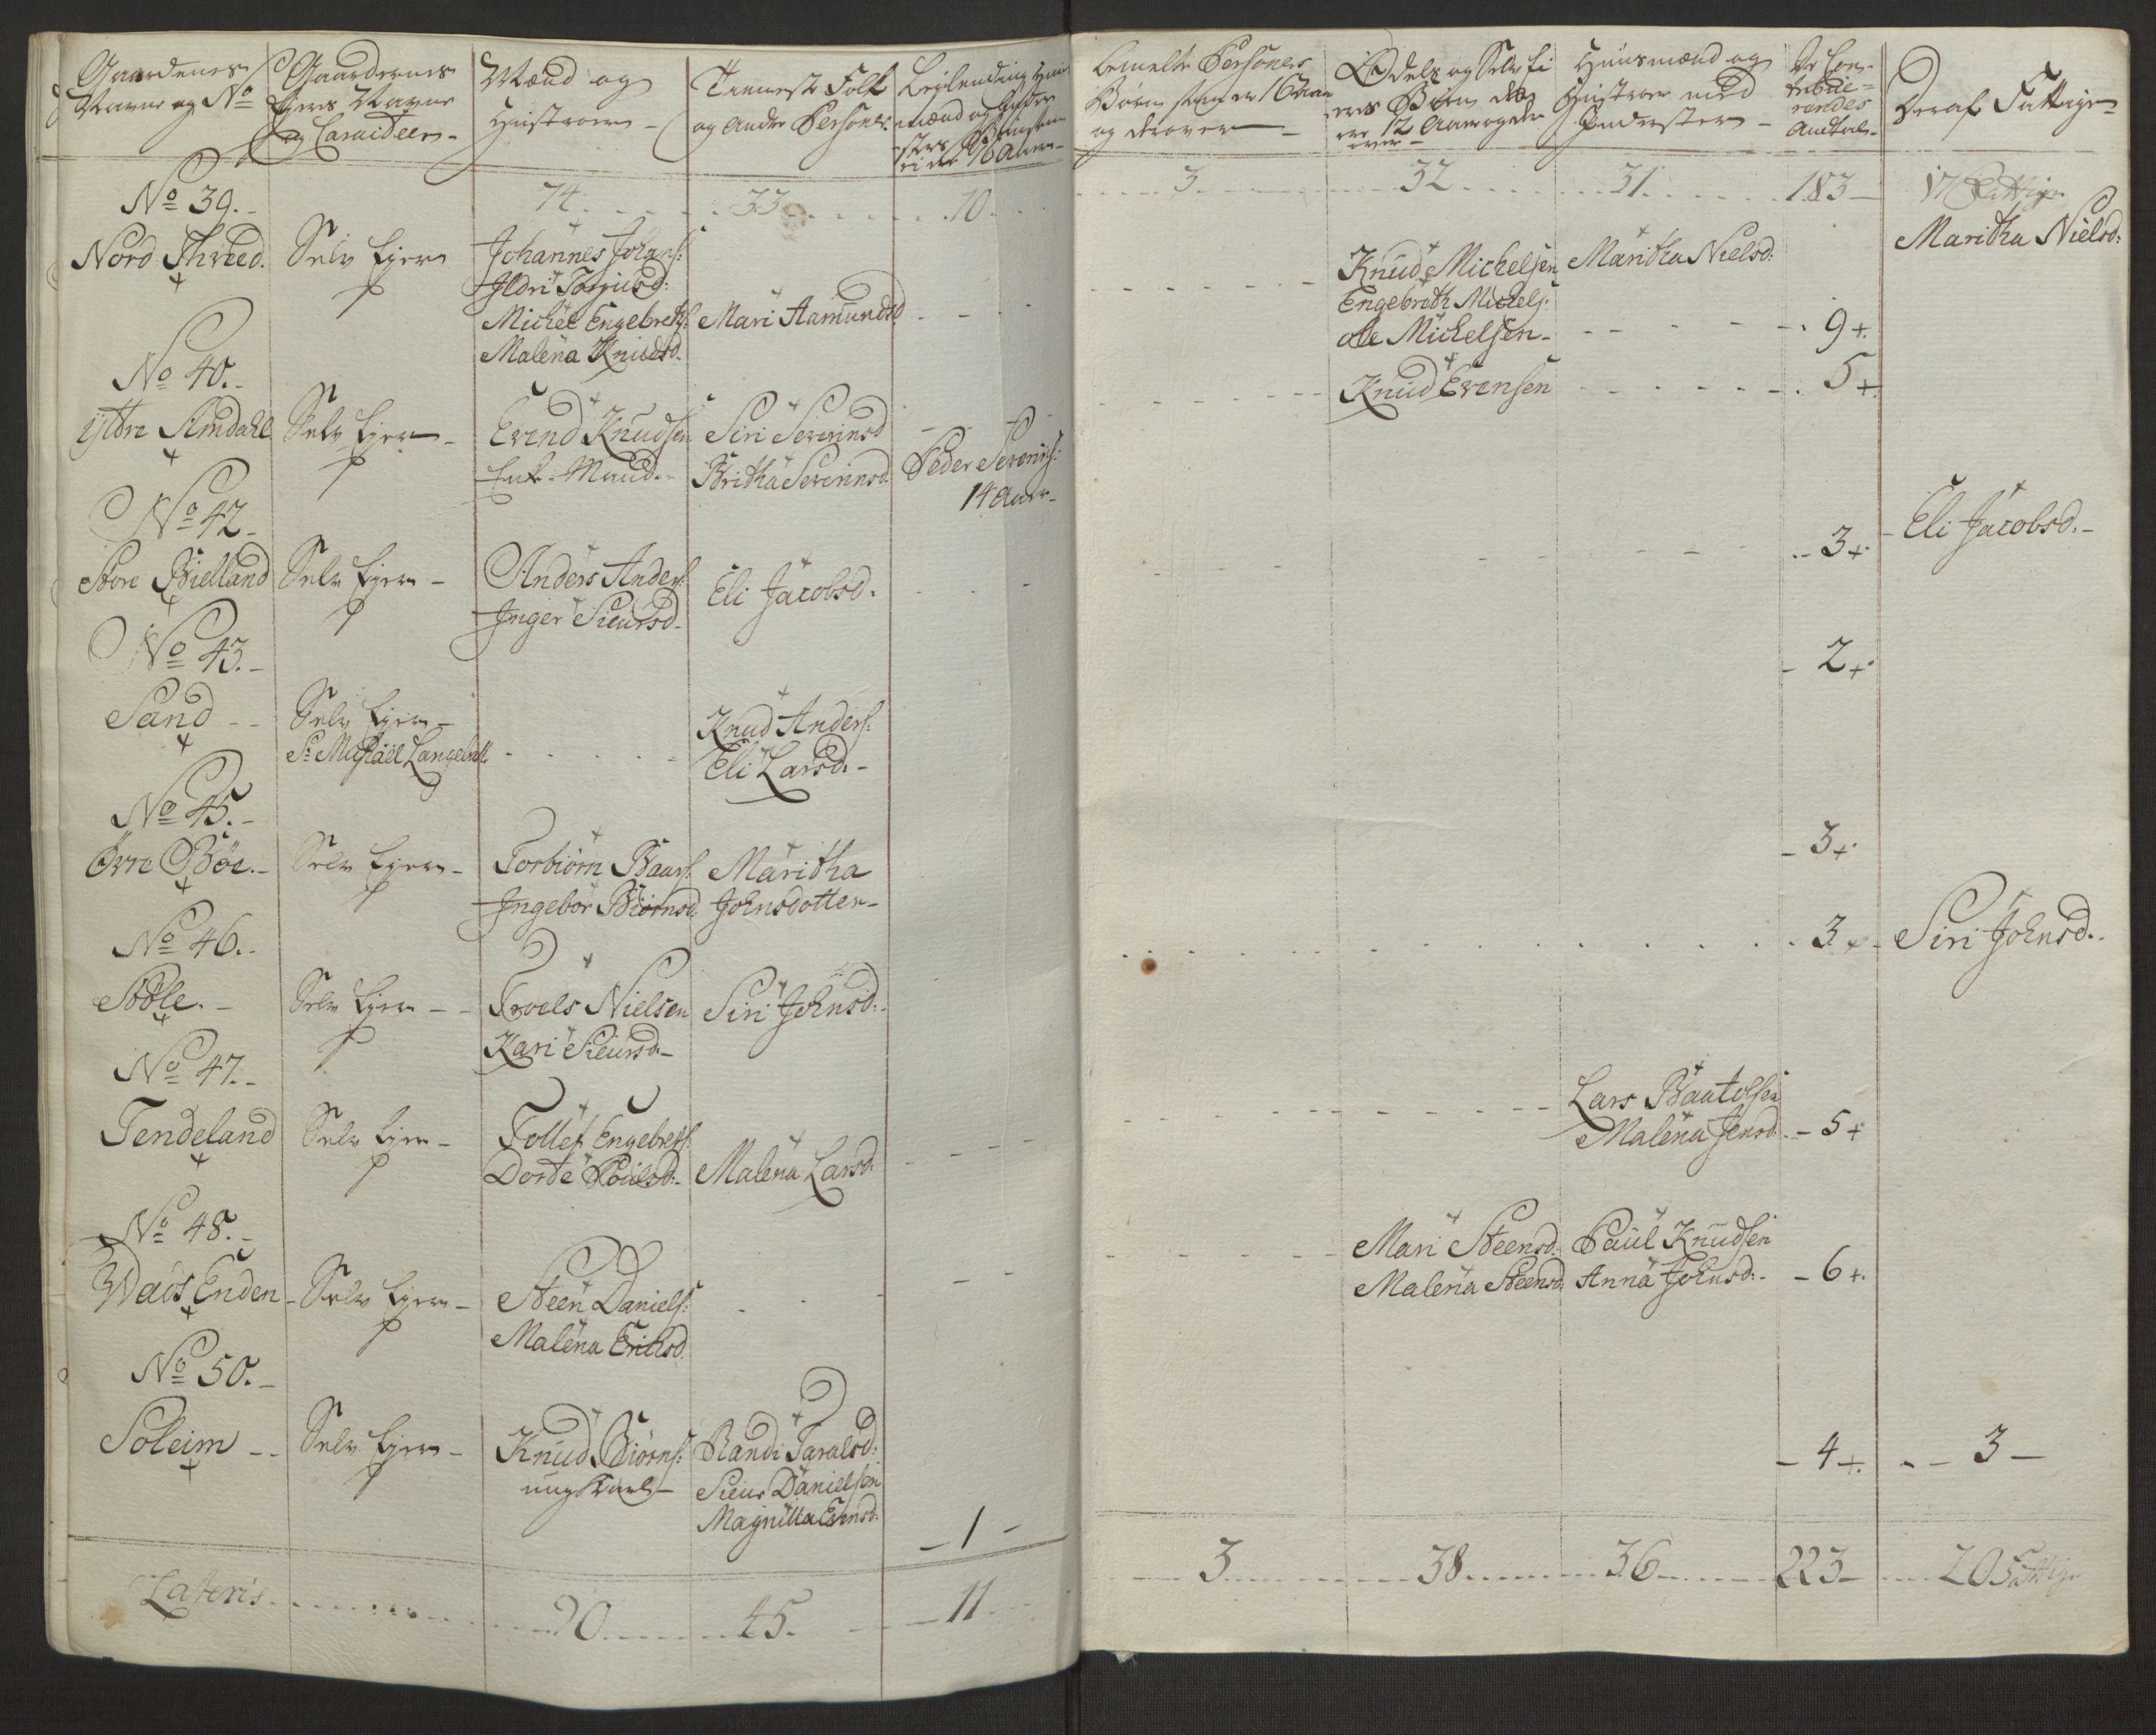 Gaardenes
Navne og No
Gaardernes
Ejers Navne
og Caracteer
Mænd og
Hustroer
Tienneste Folk
og Andre Personer
Lejlending Huus
mænd og Inder
sters Børn som
ere 16 Aar
bemelte Personers
Børn som er 16 Aar
og derover
Odels og Selv Ei
eres Børn der
ere 12 Aar og der
over
Huusmænd og
Hustroer med
Inderster
De Con-
tribue-
rendes
Andtal
Deraf Fattige
74 33 10 3 32 31 183 17 Fattige
No 39.
Nord Thveed.
Selv Ejer
Johannes Johans:
Ildri Torjusd:
Michel Engebrets:
Malena Knudsd.
Mari Aamundsd
Knud Michelsen
Engebreth Michels:
ole Michelsen
Maritha Nielsd:
9
Maritha Nielsd:
No 40.
Yttre Amdahl
Selv Ejer
Evend Knudsen
Enke-Mand.
Siri Severinsd
Britha Severinsd.
Peder Severins:
14 Aar
Knud Evensen
5
No 42
Store Bielland
Selv Ejer
Anders Anders:
Inger Siursd.
Eli Jacobsd.
3
Eli Jacobsd.
No 43.
Sand
Selv Ejer
Sr Michael Langebek
Knud Anders:
Eli Larsd.
2
No 45.
Övre Böe.
Selv Ejer
Torbiørn Baars:
Ingebor Biörnsd.
Maritha
Johnsdotter
3
No 46.
Støle.
Selv Ejer
Troels Nielsen
Kari Siursd.
Siri Johnsd.
3
Siri Johnsd.
No 47.
Tendeland
Selv Ejer
Tollef Engebrets:
Dorte Poulsd.
Malena Larsd.
Lars Baatelsen
Malena Jensd.
5
No 48.
Waås Enden
Selv Ejer
Steen Daniels:
Malena Erichsd.
Mari Steensd.
Malena Steensd.
Paul Knudsen
Anna Johnsd.
6
No 50.
Soleim
Selv Ejer
Knud Biörns:
ung Karl
Randi Taralsd:
Siur Danielsen
Magnilla Evensd.
1
4
3
Lateris 90 45 11 3 38 36 223 20 Fattige